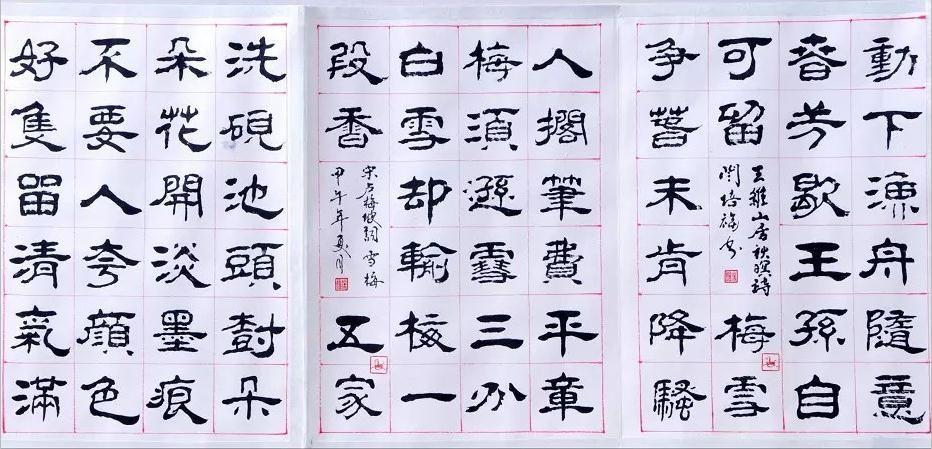 動下漁舟隨意
春芳歇王孫自
可留
王維山居秋暝詩
關培福书
梅雪
爭春未肯降騷
人擱筆費平章
梅須遜雪三分
白雪却輸梅一
段香
宋卢梅坡詞 雪梅
甲午年夏月
五家
洗硯池頭樹朵
朵花開淡墨痕
不要人夸顏色
好隻留清氣滿